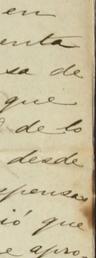 en
enta
sa de
que
de lo
desde
spensa
ió que
e apro-